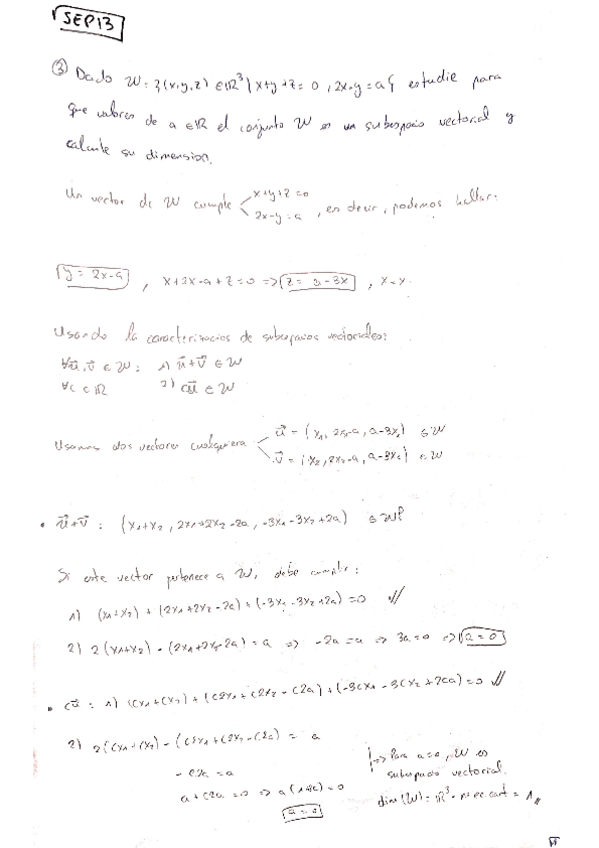 SEP13
③ Dado W = {(x,y,z) ∈ ℝ³ | x+y+z=0, 2x-y=a} estudie para
que valores de a ∈ ℝ el conjunto W es un subespacio vectorial y
calcule su dimension.
Un vector de W cumple x+y+z=0
2x-y=a, es decir, podemos hallar:
y = 2x-a, x+2x-a+z=0 => z = a-3x, x=x.
Usando la caracterizacion de subespacios vectoriales:
∀u⃗,v⃗ ∈ W: 1) u⃗+v⃗ ∈ W
∀c ∈ ℝ 2) cu⃗ ∈ W
Usamos dos vectores cualquiera u⃗ = (x₁, 2x₁-a, a-3x₁) ∈ W
v⃗ = (x₂, 2x₂-a, a-3x₂) ∈ W
• u⃗+v⃗: (x₁+x₂, 2x₁+2x₂-2a, -3x₁-3x₂+2a) ∈ W?
Si este vector pertenece a W, debe cumplir:
1) (x₁+x₂) + (2x₁+2x₂-2a) + (-3x₁-3x₂+2a) = 0 //
2) 2(x₁+x₂) - (2x₁+2x₂-2a) = a => -2a=a => 3a=0 => a=0
• cu⃗: 1) (cx₁+cx₂) + (c2x₁+c2x₂-c2a) + (-3cx₁-3cx₂+2ca) = 0 //
2) 2(cx₁+cx₂) - (c2x₁+c2x₂-c2a) = a
-c2a = a
a+c2a=0 => a(1+2c)=0
a=0
=> Para a=0, W es
subespacio vectorial.
dim(W) = ℝ³ - nº ec. cart = 1 //